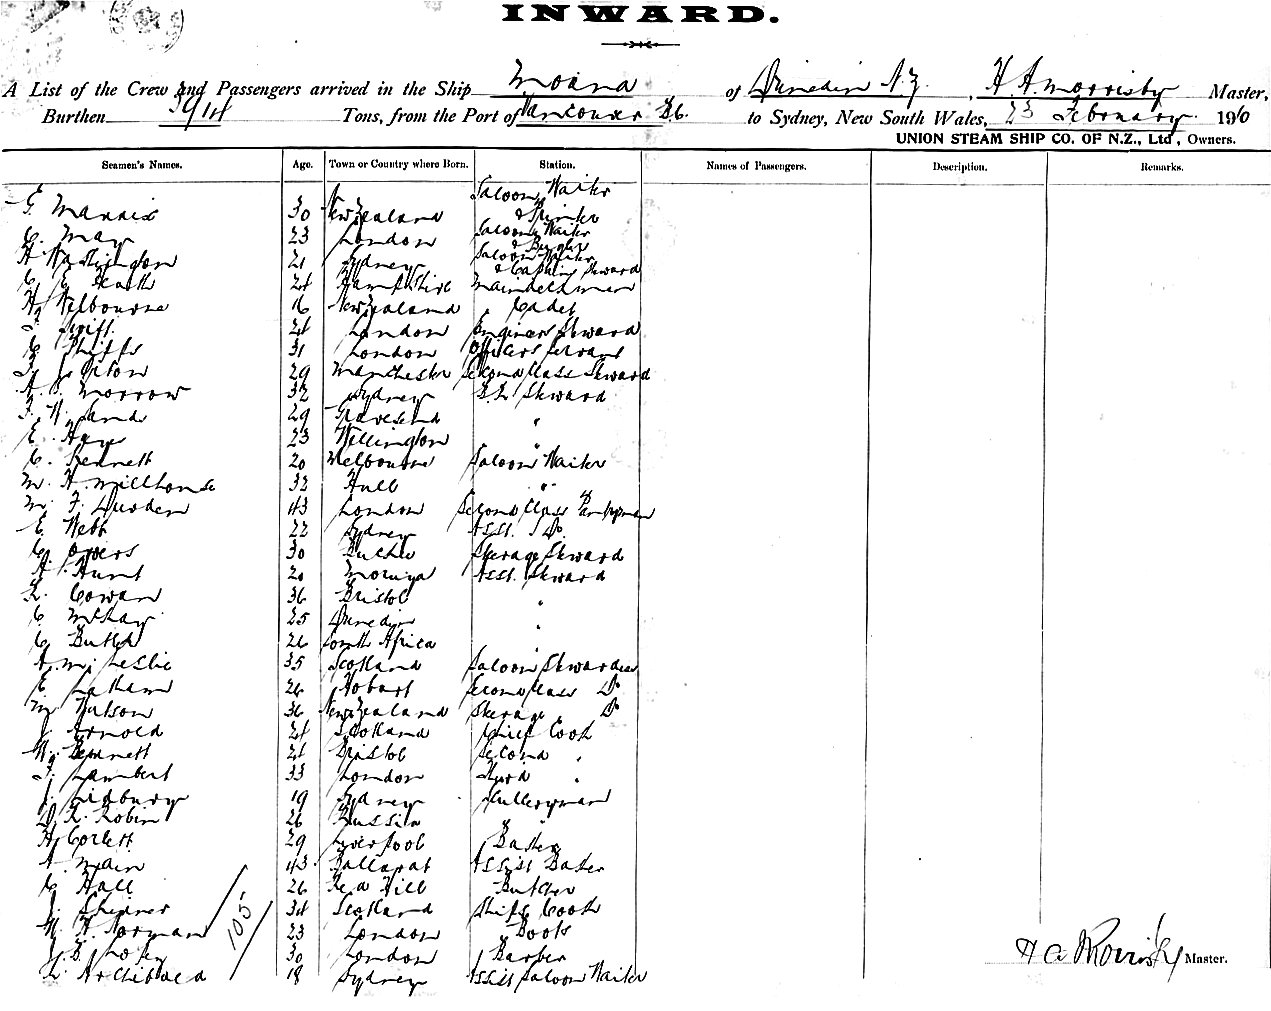 INWARD.
A List of the Crew and Passengers arrived in the Ship Moana of Dunedin N.Z. H A Morrisby Master,
Burthen 3914 Tons, from the Port of Vancouver B.C. to Sydney, New South Wales, 23 February 190
UNION STEAM SHIP CO. OF N.Z., Ltd, Owners.
Seamen's Names. Age. Town or Country where Born. Station. Names of Passengers. Description. Remarks.
E. Mannix 30 New Zealand Saloon Waiter & Printer
C. May 23 London Saloon Waiter & Bugler
H Washington 21 Sydney Saloon Waiter & Captains Steward
C. E. Heath 24 Hampshire
H. Welbourne 16 New Zealand Cadet
Swift 24 London Engineers Steward
31 London Officers Servant
J. Orton 29 Manchester Second Class Steward
A. Morrow 32 Sydney Steward
W. Sand 29 Gravesend "
E. Hay 23 Wellington "
C. Kennett 20 Melbourne Saloon Waiter
M. H. Millhouse 32 Hull "
M. F. 43 London Second Class Pantryman
E. Webb 22 Sydney Asst. Do
C. Owers 30 Steerage Steward
A. Hunt 20 Moruya Asst. Steward
Cowan 36 Bristol "
C. McKay 25 Dunedin "
C. Butler 26 South Africa "
A. M. Leslie 35 Scotland Saloon Stewardess
E. Latham 26 Hobart Second Class Do
M. Watson 36 New Zealand Steerage Do
J. Arnold 24 Scotland Chief Cook
W. Bennett 21 Bristol Second "
Lambert 33 London Third "
J. Sidbury 19 Sydney Sculleryman
Robin 26 Russia "
H. Corlett 29 Liverpool Baker
A. Main 43 Ballarat Assist Baker
C. Hall 26 Butcher
J. Skinner 34 Scotland Ships Cook
W. H. Norman 23 London Boots
30 London Barber
Archibald 18 Sydney Assist Saloon Waiter
105
H A Morrisby Master.